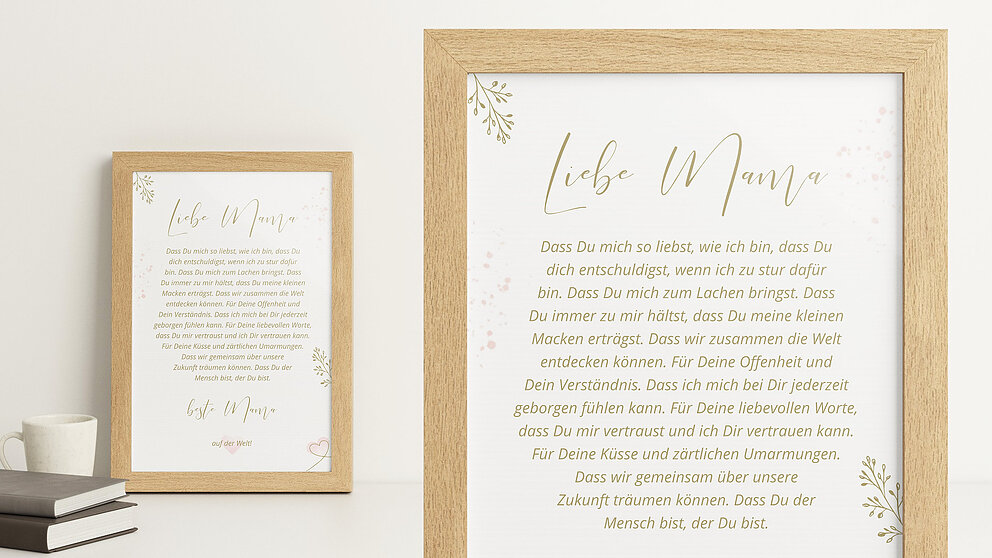 Liebe Mama
Dass Du mich so liebst, wie ich bin, dass Du
dich entschuldigst, wenn ich zu stur dafür
bin. Dass Du mich zum Lachen bringst. Dass
Du immer zu mir hältst, dass Du meine kleinen
Macken erträgst. Dass wir zusammen die Welt
entdecken können. Für Deine Offenheit und
Dein Verständnis. Dass ich mich bei Dir jederzeit
geborgen fühlen kann. Für Deine liebevollen Worte,
dass Du mir vertraust und ich Dir vertrauen kann.
Für Deine Küsse und zärtlichen Umarmungen.
Dass wir gemeinsam über unsere
Zukunft träumen können. Dass Du der
Mensch bist, der Du bist.
beste Mama
auf der Welt!
Liebe Mama
Dass Du mich so liebst, wie ich bin, dass Du
dich entschuldigst, wenn ich zu stur dafür
bin. Dass Du mich zum Lachen bringst. Dass
Du immer zu mir hältst, dass Du meine kleinen
Macken erträgst. Dass wir zusammen die Welt
entdecken können. Für Deine Offenheit und
Dein Verständnis. Dass ich mich bei Dir jederzeit
geborgen fühlen kann. Für Deine liebevollen Worte,
dass Du mir vertraust und ich Dir vertrauen kann.
Für Deine Küsse und zärtlichen Umarmungen.
Dass wir gemeinsam über unsere
Zukunft träumen können. Dass Du der
Mensch bist, der Du bist.